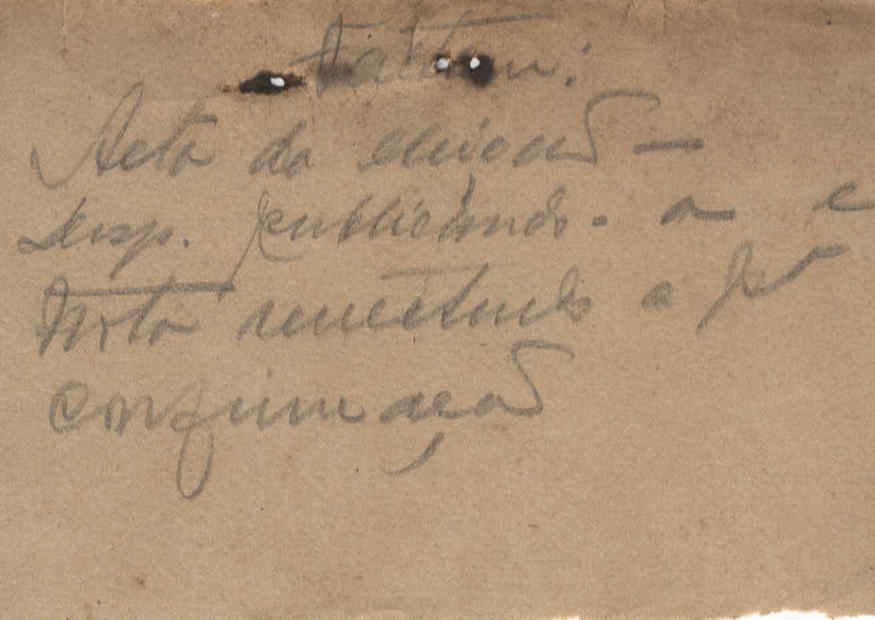 Faltam:
Acta da eleição —
desp. publicando - a e
Nota remettendo a p
confirmação